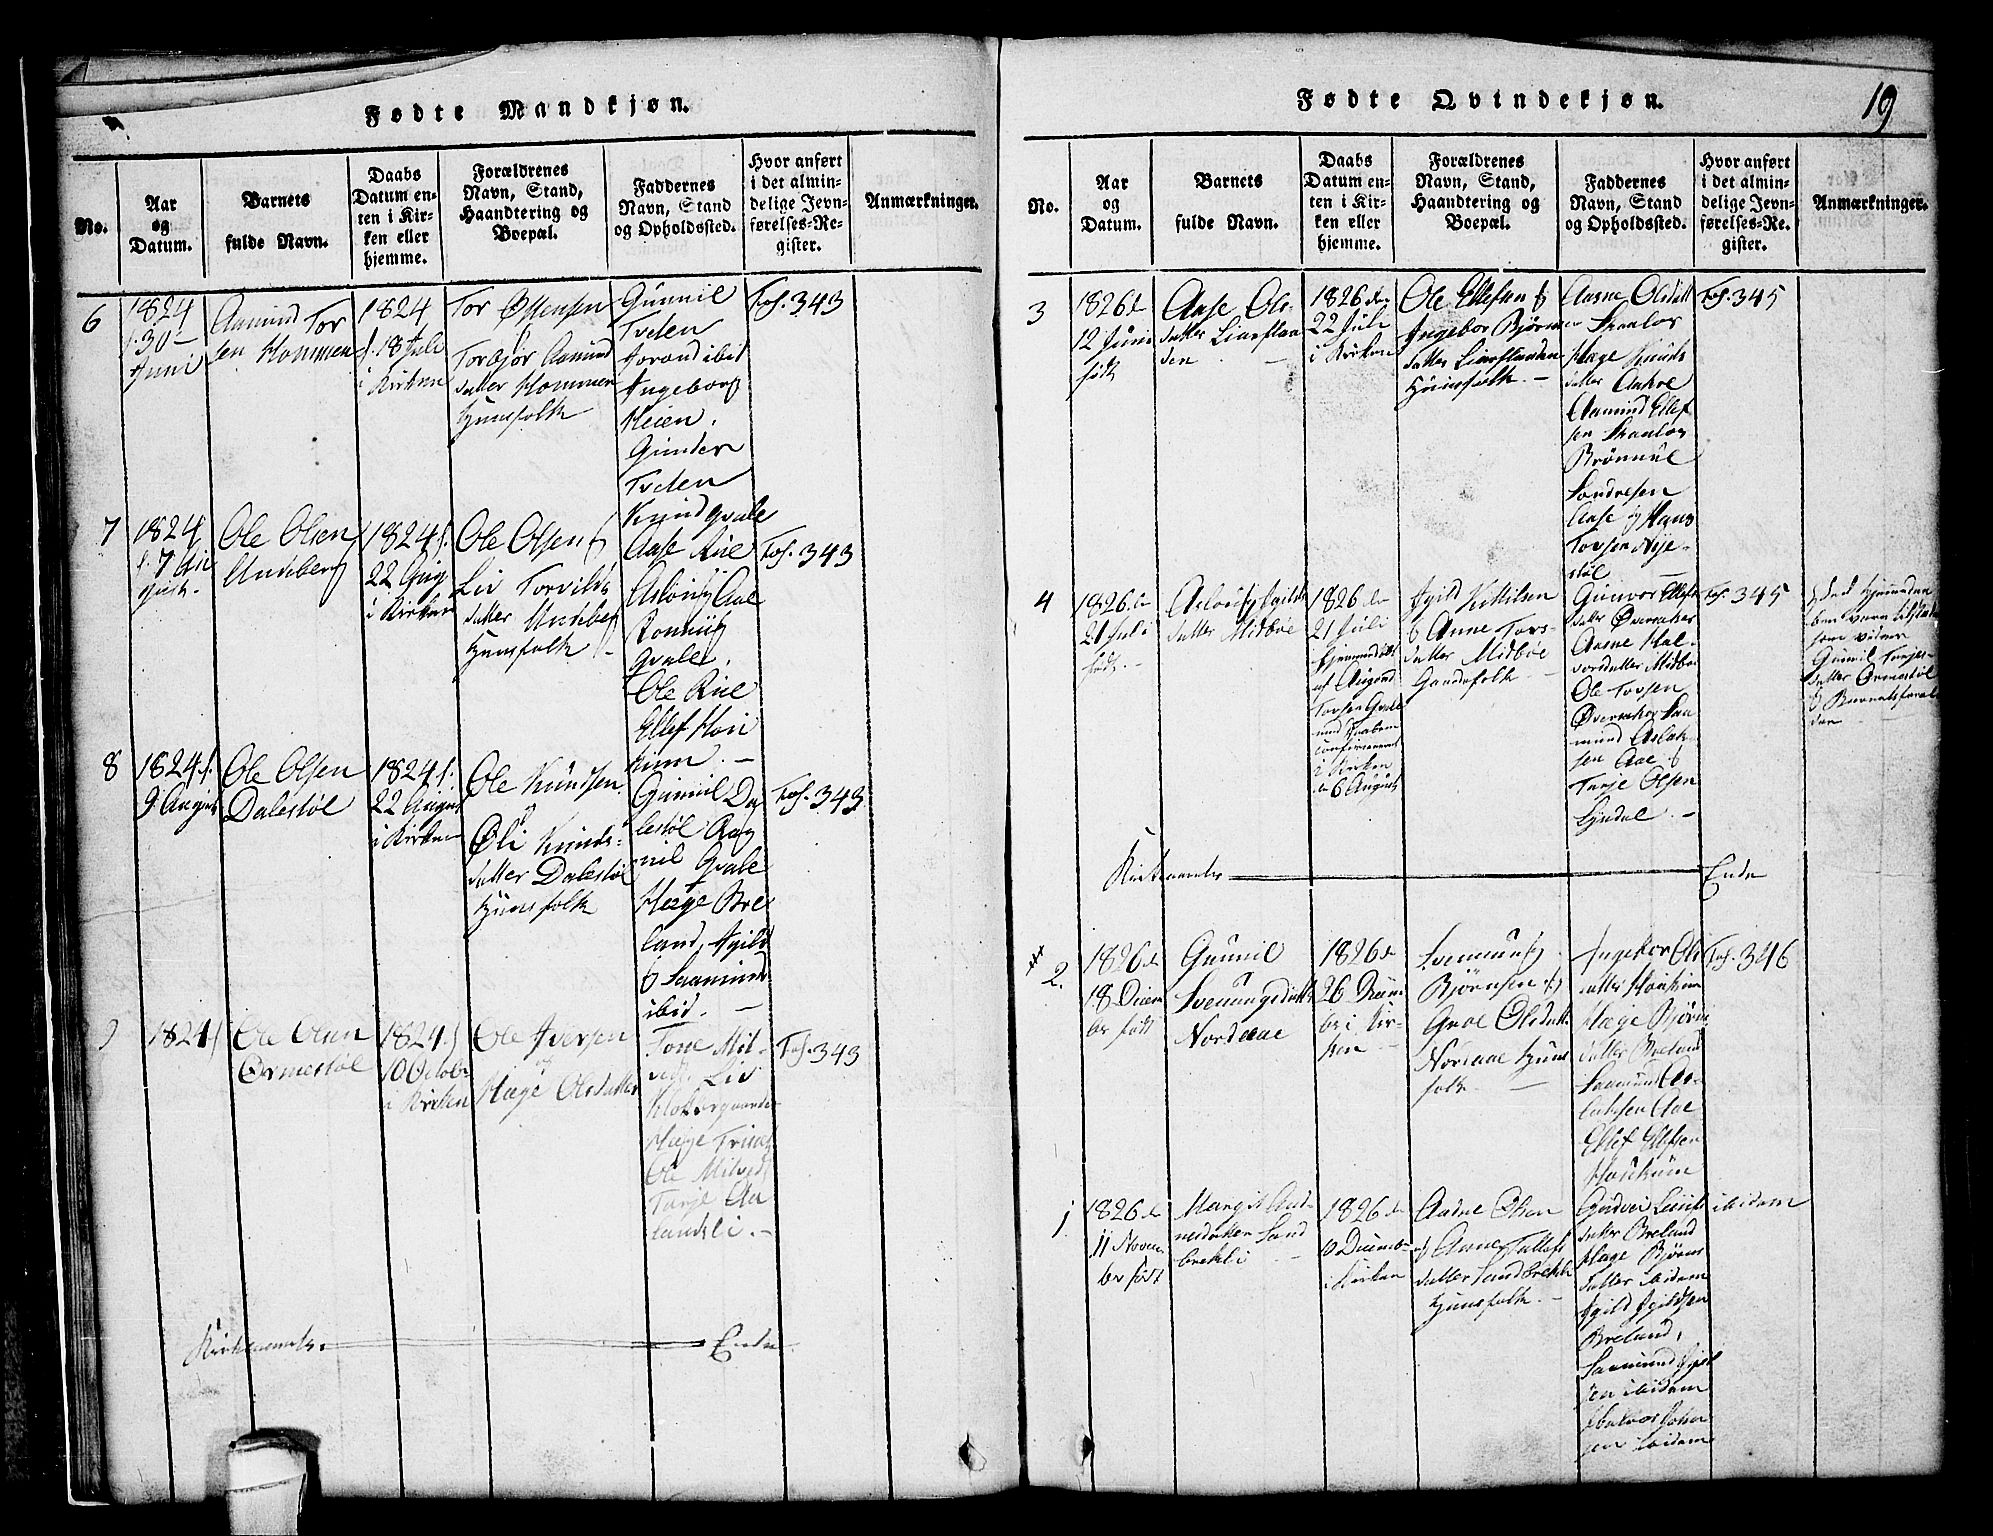 Fødte Mandkjøn.
No.
Aar
og
Datum.
Barnets
fulde Navn.
Daabs
Datum en-
ten i Kir-
ken eller
hjemme.
Forældrenes
Navn, Stand,
Haandtering og
Boepæl.
Faddernes
Navn, Stand
og Opholdssted.
Hvor anført
i det almin-
delige Jevn-
førelses-Re-
gister.
Anmærkninger.
6
1824
30
Juni
Aamund Tor
sen Hommen
1824
18 Juli
i Kirken
Tor Østensen
Torbjør Aamund
datter Hommen
Huusfolk
Gunnil
Tveten
Jorand ibid
Ingeborg
Keien.
Gunder
Tveten
Knud Qvale
Fol. 343
7
1824
d. 7 Au
gust.
Ole Olsen
Undeberg
1824 d.
22 Aug
i Kirken
Ole Olsen
Liv Torvilds
datter Undeberg
Huusfolk
Aase Rue
Aslaug Aae
Ronnug
Qvale.
Ole Rue
Ellef Hon
kinn. —
Fol. 343
8
1824 d.
9 August
Ole Olsen
Dalestøl
1824 d.
22 August
i Kirken
Ole Knudsen
Øli Knuds-
datter Dalestøl
Huusfolk
Gunnil Da
lestøl Rag
nil Qvale
Hæge Bre
land, Igild
Saamund
ibid. —
Fol. 343
9
1824
Ole Olsen
Ormestøl
1824
10 Octob
i Kirken
Ole Iversen
og
Hæge Olsdatter
Tone Mit-
Liv
Klokkergaarden
Hæge
Ole
Tarje
Fol. 343
Ende
Fødte Qvindekjøn.
19
No.
Aar
og
Datum.
Barnets
fulde Navn.
Daabs
Datum en-
ten i Kir-
ken eller
hjemme.
Forældrenes
Navn, Stand,
Haandtering og
Boepæl.
Faddernes
Navn, Stand
og Opholdssted.
Hvor anført
i det almin-
delige Jevn-
førelses-Re-
gister.
Anmærkninger.
3
1826 d
12 Juni
født
Aase Ols-
datter Liarflaa
den
1826 den
22 Juli
i Kirken
Ole Ellefsen
Ingebor Bjørns
datter Liarflaaden
Huusfolk. —
Aasne Olsdatt
Skaalor
Hæge Knuds
datter
Aamund Ellef
sen Skaalor
Brønnul
Sondresen
Aase Hans
Torsen Nye-
støl
Fol. 345
4
1826 d
21 Juli
født. —
Aslaug Igilds
datter Midbøe
1826 den
21 Juli
hjemmedøbt
af Augond
Torsen Qvale
confirmeret
i Kirken
d 6 August
Igild Kittilsen
Anne Tors-
datter Midbøe
Gaardefolk —
Gunvor Ellefs
datter Øveraker
Aasne Hal-
vordatter Midbøe
Ole Torsen
Øveraker Saa
mund Aslak-
sen Aae
Tarje Olsen
Lyndal. —
Fol. 345
Ved Hjemmedaa
ben være tilstæde
som vidner
Gunnil Tarjes-
datter Ormestøl
Barnets foræl
dre —
Ende
2.
1826 d
18 Decem
ber født
Gunnil
Svenungsdatt
Nordaae
1826 d
26 Decem
ber i Kir-
ken —
Svenung
Bjørnsen
Groe Olsdatt
Nordaae Huus
folk. —
Ingebor Ols
datter Honkim
Hæge Bjørns
datter Breland
Saamund As-
laksen Aae
Ellef Ellefsen
Fol. 346
1
1826 d
11 Novem
ber født
Margit And
nesdatter Sand
brekli
1826 den
Decemb
i Kirken
Aadne Olsen
Anne Tallefs
datter Sandbrekk
Huusfolk. —
datter Breland
Hæge Bjørns
datter ibidem
Igild Igildsen
Breland,
Saamund Igild
sen ibidem
sen ibidem
ibidem